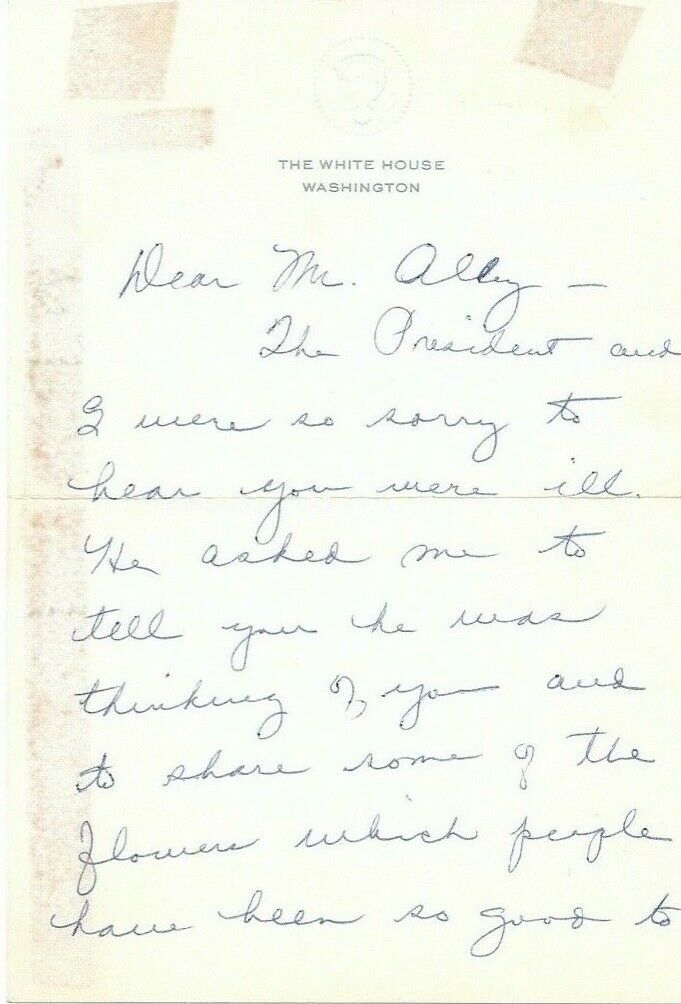 THE WHITE HOUSE
WASHINGTON
Dear Mr. Alley —
The President and
I were so sorry to
hear you were ill.
He asked me to
tell you he was
thinking of you and
to share some of the
flowers which people
have been so good to